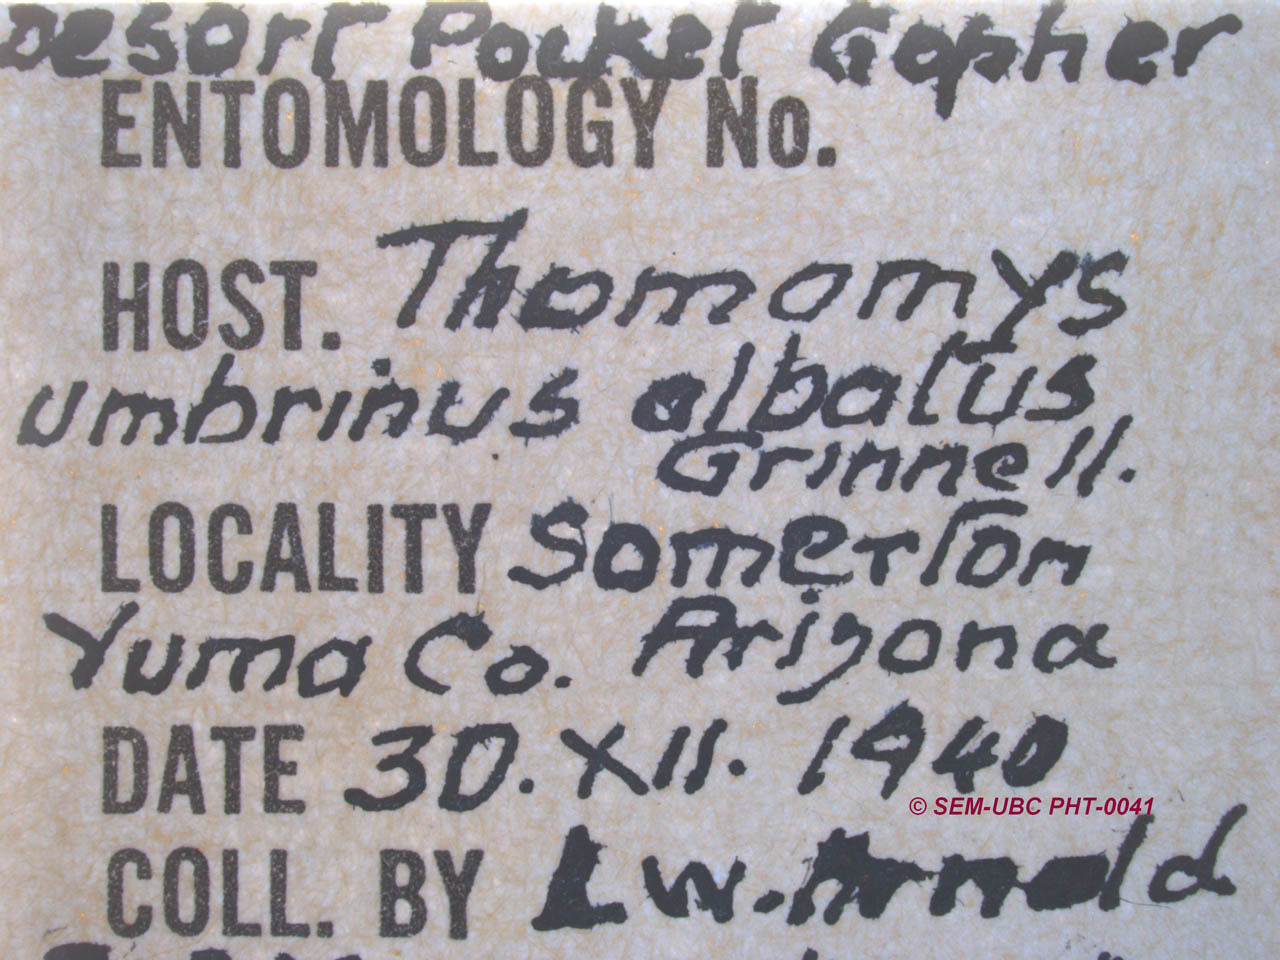 Desert Pocket Gopher
ENTOMOLOGY No.
HOST. Thomomys
umbrinus albatus
Grinnell.
LOCALITY Somerton
Yuma Co. Arizona
DATE 30.XII. 1940
© SEM-UBC PHT-0041
COLL. BY L W. Arnold